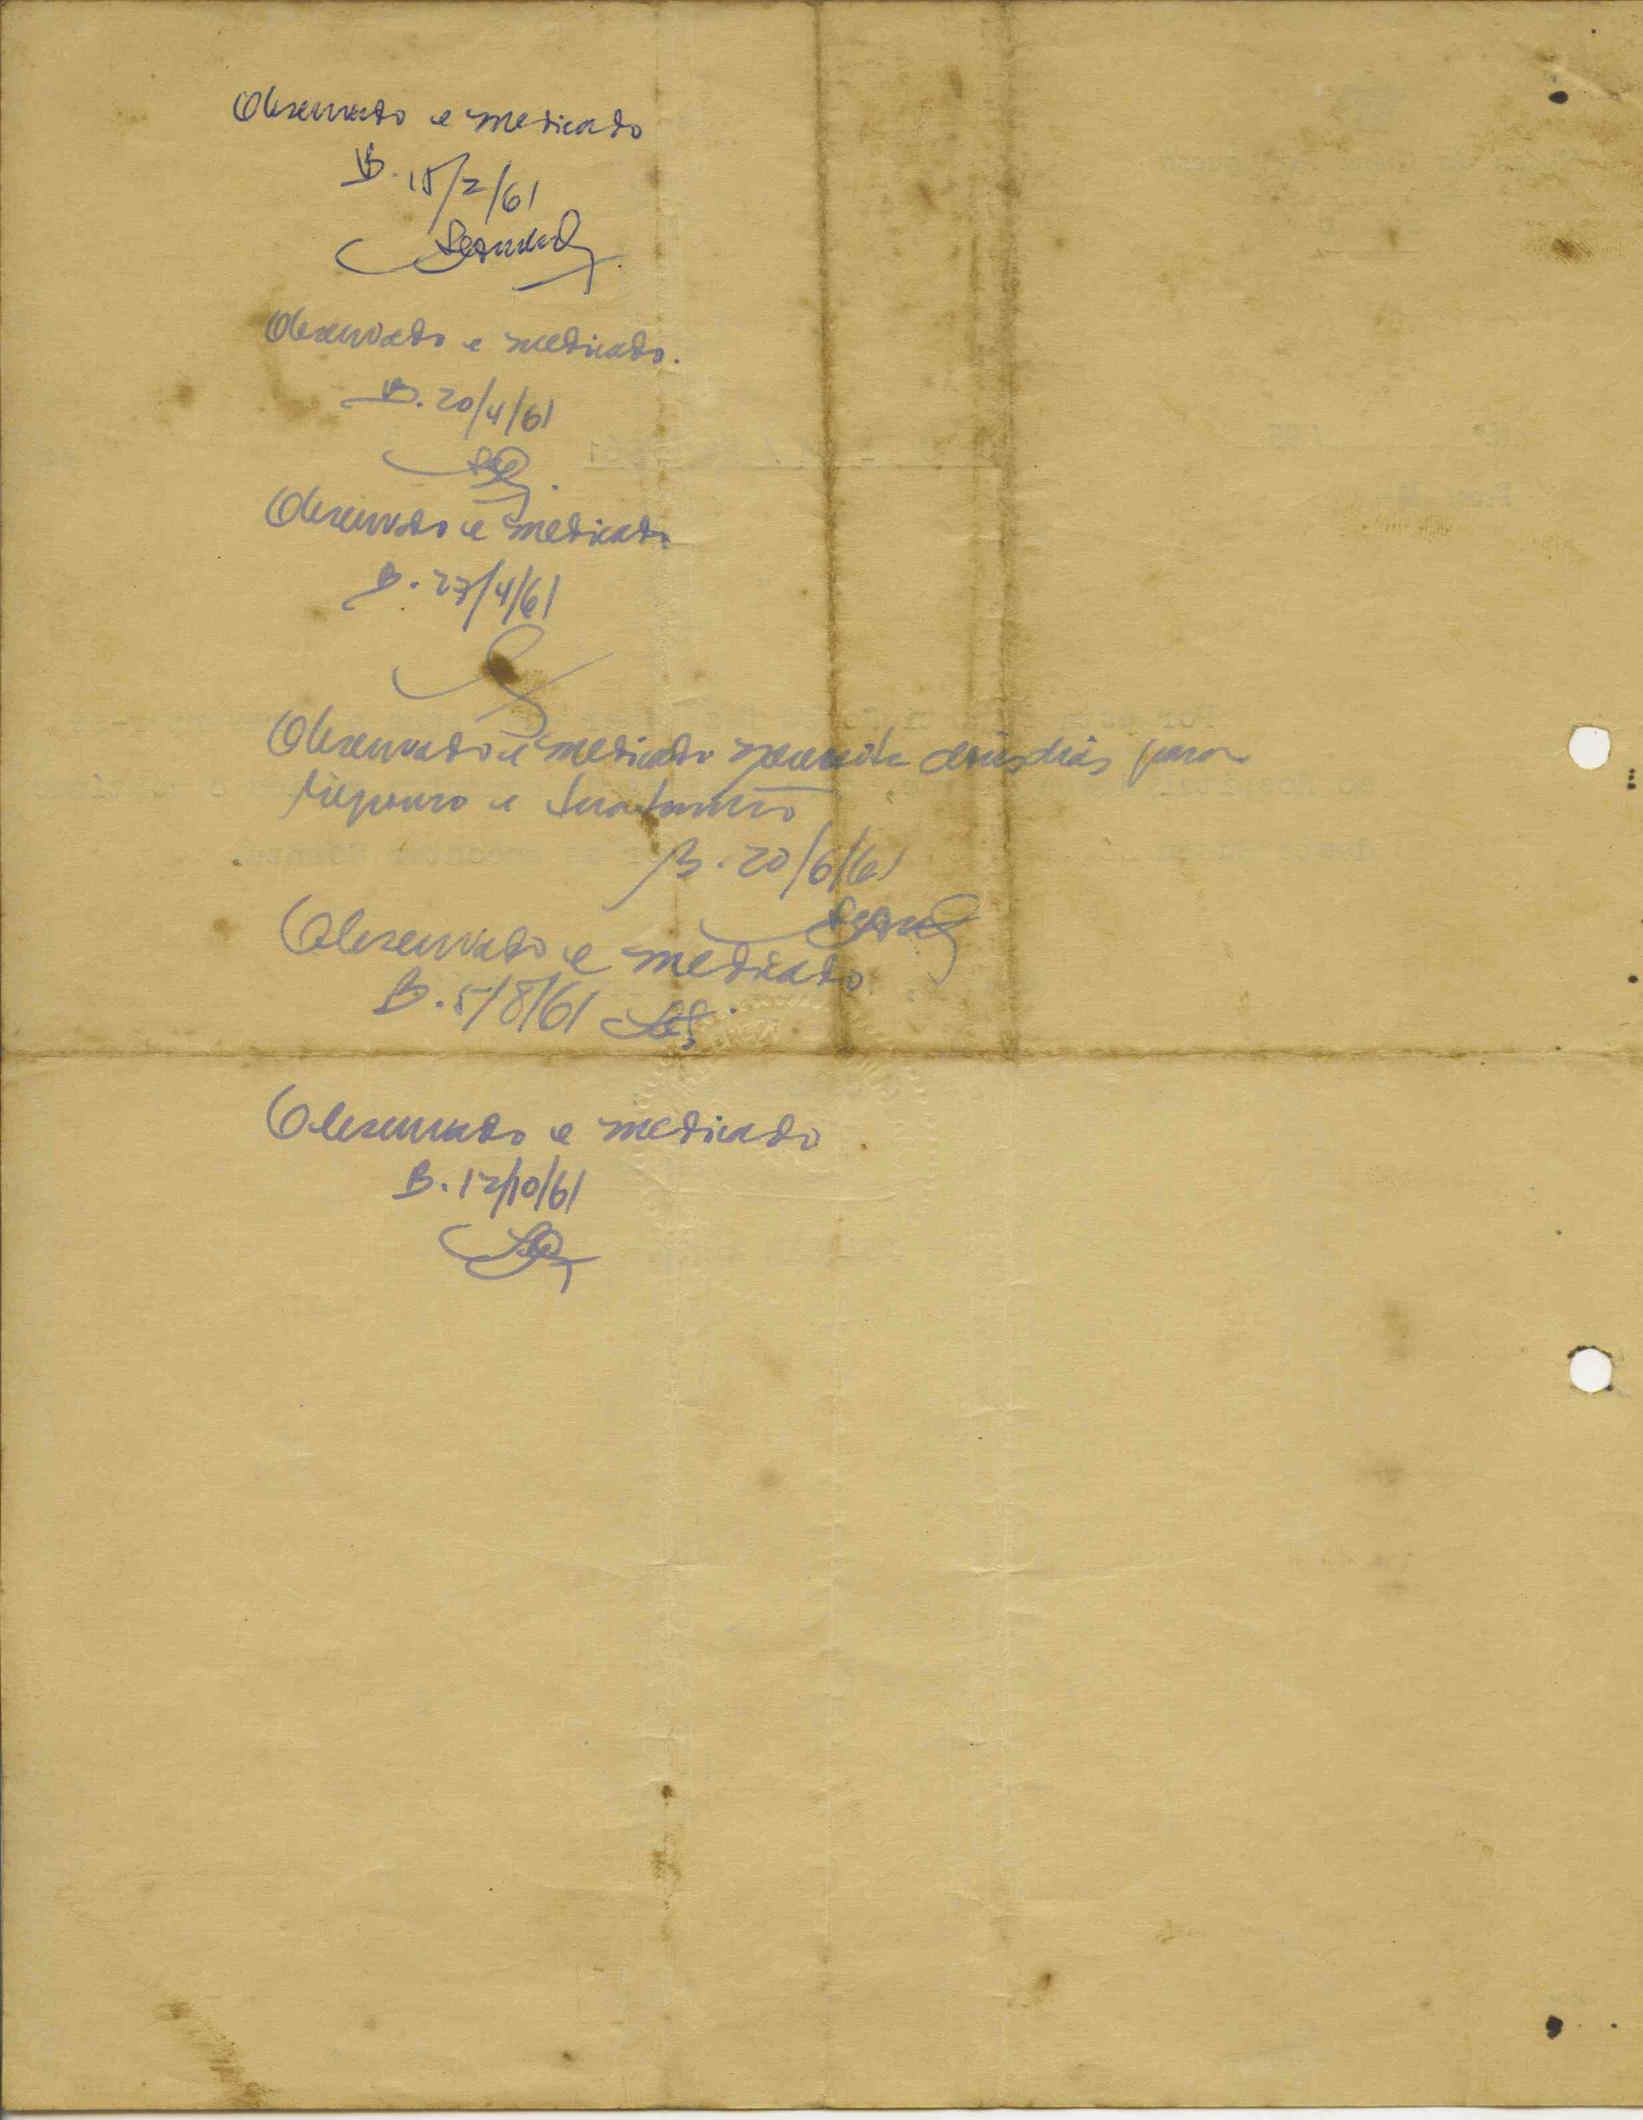 Observado e medicado
B. 15/2/61
Observado e medicado.
B. 20/4/61
Observado e medicado
B. 27/4/61
Observado e medicado necessita dois dias para
repouso e tratamento
B. 20/6/61
Observado e medicado
B. 5/8/61
Observado e medicado
B. 12/10/61